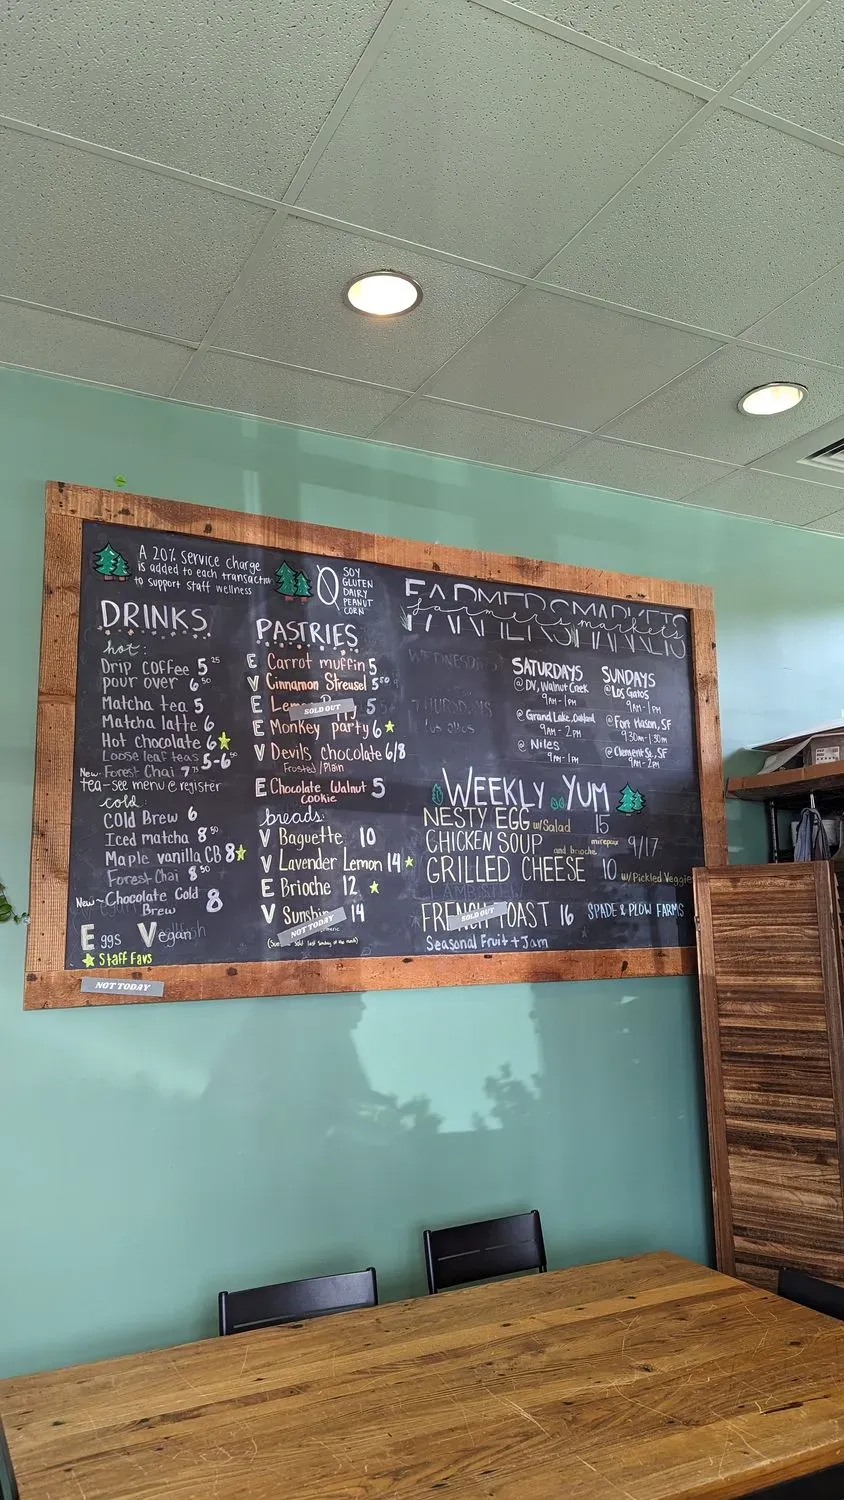 A 20% service charge
is added to each transaction
to support staff wellness
SOY
GLUTEN
DAIRY
PEANUT
CORN
DRINKS
hot:
Drip coffee 5 25
pour over 6 50
Matcha tea 5
Matcha latte 6
Hot chocolate 6
Loose leaf teas 5-6 50
New Forest Chai 7
tea-see menu @ register
cold:
Cold Brew 6
Iced matcha 8 50
Maple vanilla CB 8
Forest Chai 8 50
New~Chocolate Cold
Brew 8
Eggs Vegan
Staff Favs
NOT TODAY
PASTRIES
E Carrot muffin 5
V Cinnamon Streusel 5 50
E Lemon Poppy 5
SOLD OUT
E Monkey party 6
V Devils chocolate 6/8
Frosted/Plain
E Chocolate Walnut 5
cookie
breads:
V Baguette 10
V Lavender Lemon 14
E Brioche 12
V Sunshin 14
NOT TODAY
FARMERSMARKETS
farmers markets
WEDNESDAYS
THURSDAYS
los altos
SATURDAYS
@ DV, Walnut Creek
9AM-1PM
@ Grand Lake, Oakland
9AM-2PM
@ Niles
9AM-1PM
SUNDAYS
@ Los Gatos
9AM-1PM
@ Fort Mason, SF
9:30AM-1:30PM
@ Clement St., SF
9AM-2PM
WEEKLY YUM
NESTY EGG w/Salad 15
CHICKEN SOUP mirepoix and brioche 9/17
GRILLED CHEESE 10 w/ Pickled Veggies
LAMB STEW
FRENCH TOAST 16 SPADE & PLOW FARMS
SOLD OUT
Seasonal Fruit + Jam